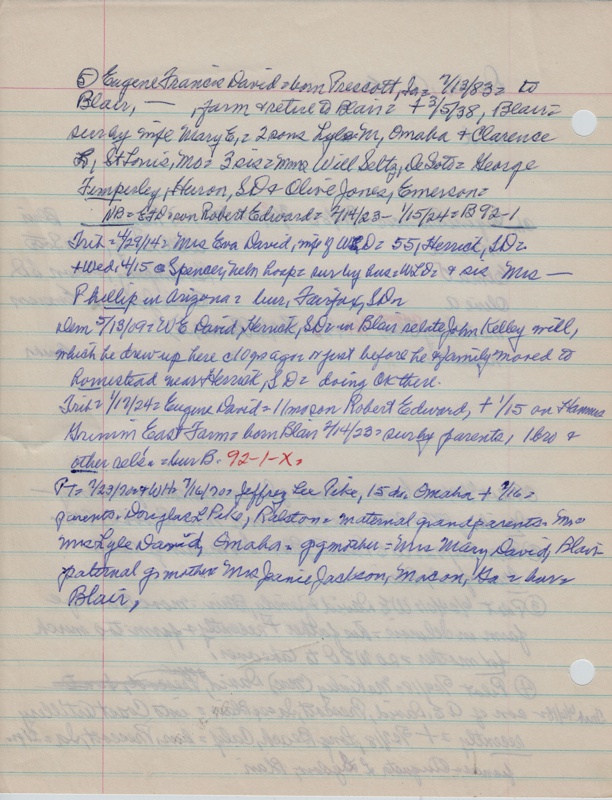 ⑤ Eugene Francis David = born Prescott, Ia = 7/13/83 = to
Blair, — , farm & retire to Blair = + 3/5/38, Blair =
surv by wife Mary E, = 2 sons Lyle M, Omaha & Clarence
St Louis, Mo = 3 sis = Mmes Will Seltz, DeSoto = George
Timperley, Herron, SD & Olive Jones, Emerson =
NB = EFD son Robert Edward = 2/14/23 - 1/15/24 = B 92-1
Trib = 4/29/14 = Mrs Eva David, wife of WED = 55, Herrick, SD =
+ Wed, 4/15 @ Spencer, Nebr hosp = surv by hus = WED = & sis Mrs —
Phillip in Arizona = bur, Fairfax, SD
Dem 5/13/09 = W E David, Herrick, SD = in Blair relate John Kelley will,
which he drew up here c10 yrs ago or just before he & family moved to
homestead near Herrick, SD = doing OK there.
Trib = 1/17/24 = Eugene David = 11 mo son Robert Edward, + 1/15 on Hannes
Grimm East Farm = born Blair 2/14/23 = surv by parents, 1 bro &
other rels. = bur B. 92-1-X.
PT = 7/23/70 & WH 7/16/70 = Jeffrey Lee Pike, 15 da, Omaha + 7/16 =
parents = Douglas L Pike, Ralston = maternal grandparents = Mr =
Mrs Lyle David, Omaha = ggmother = Mrs Mary David, Blair
paternal gmother Mrs Janie Jackson, Macon, Ga = bur =
Blair,